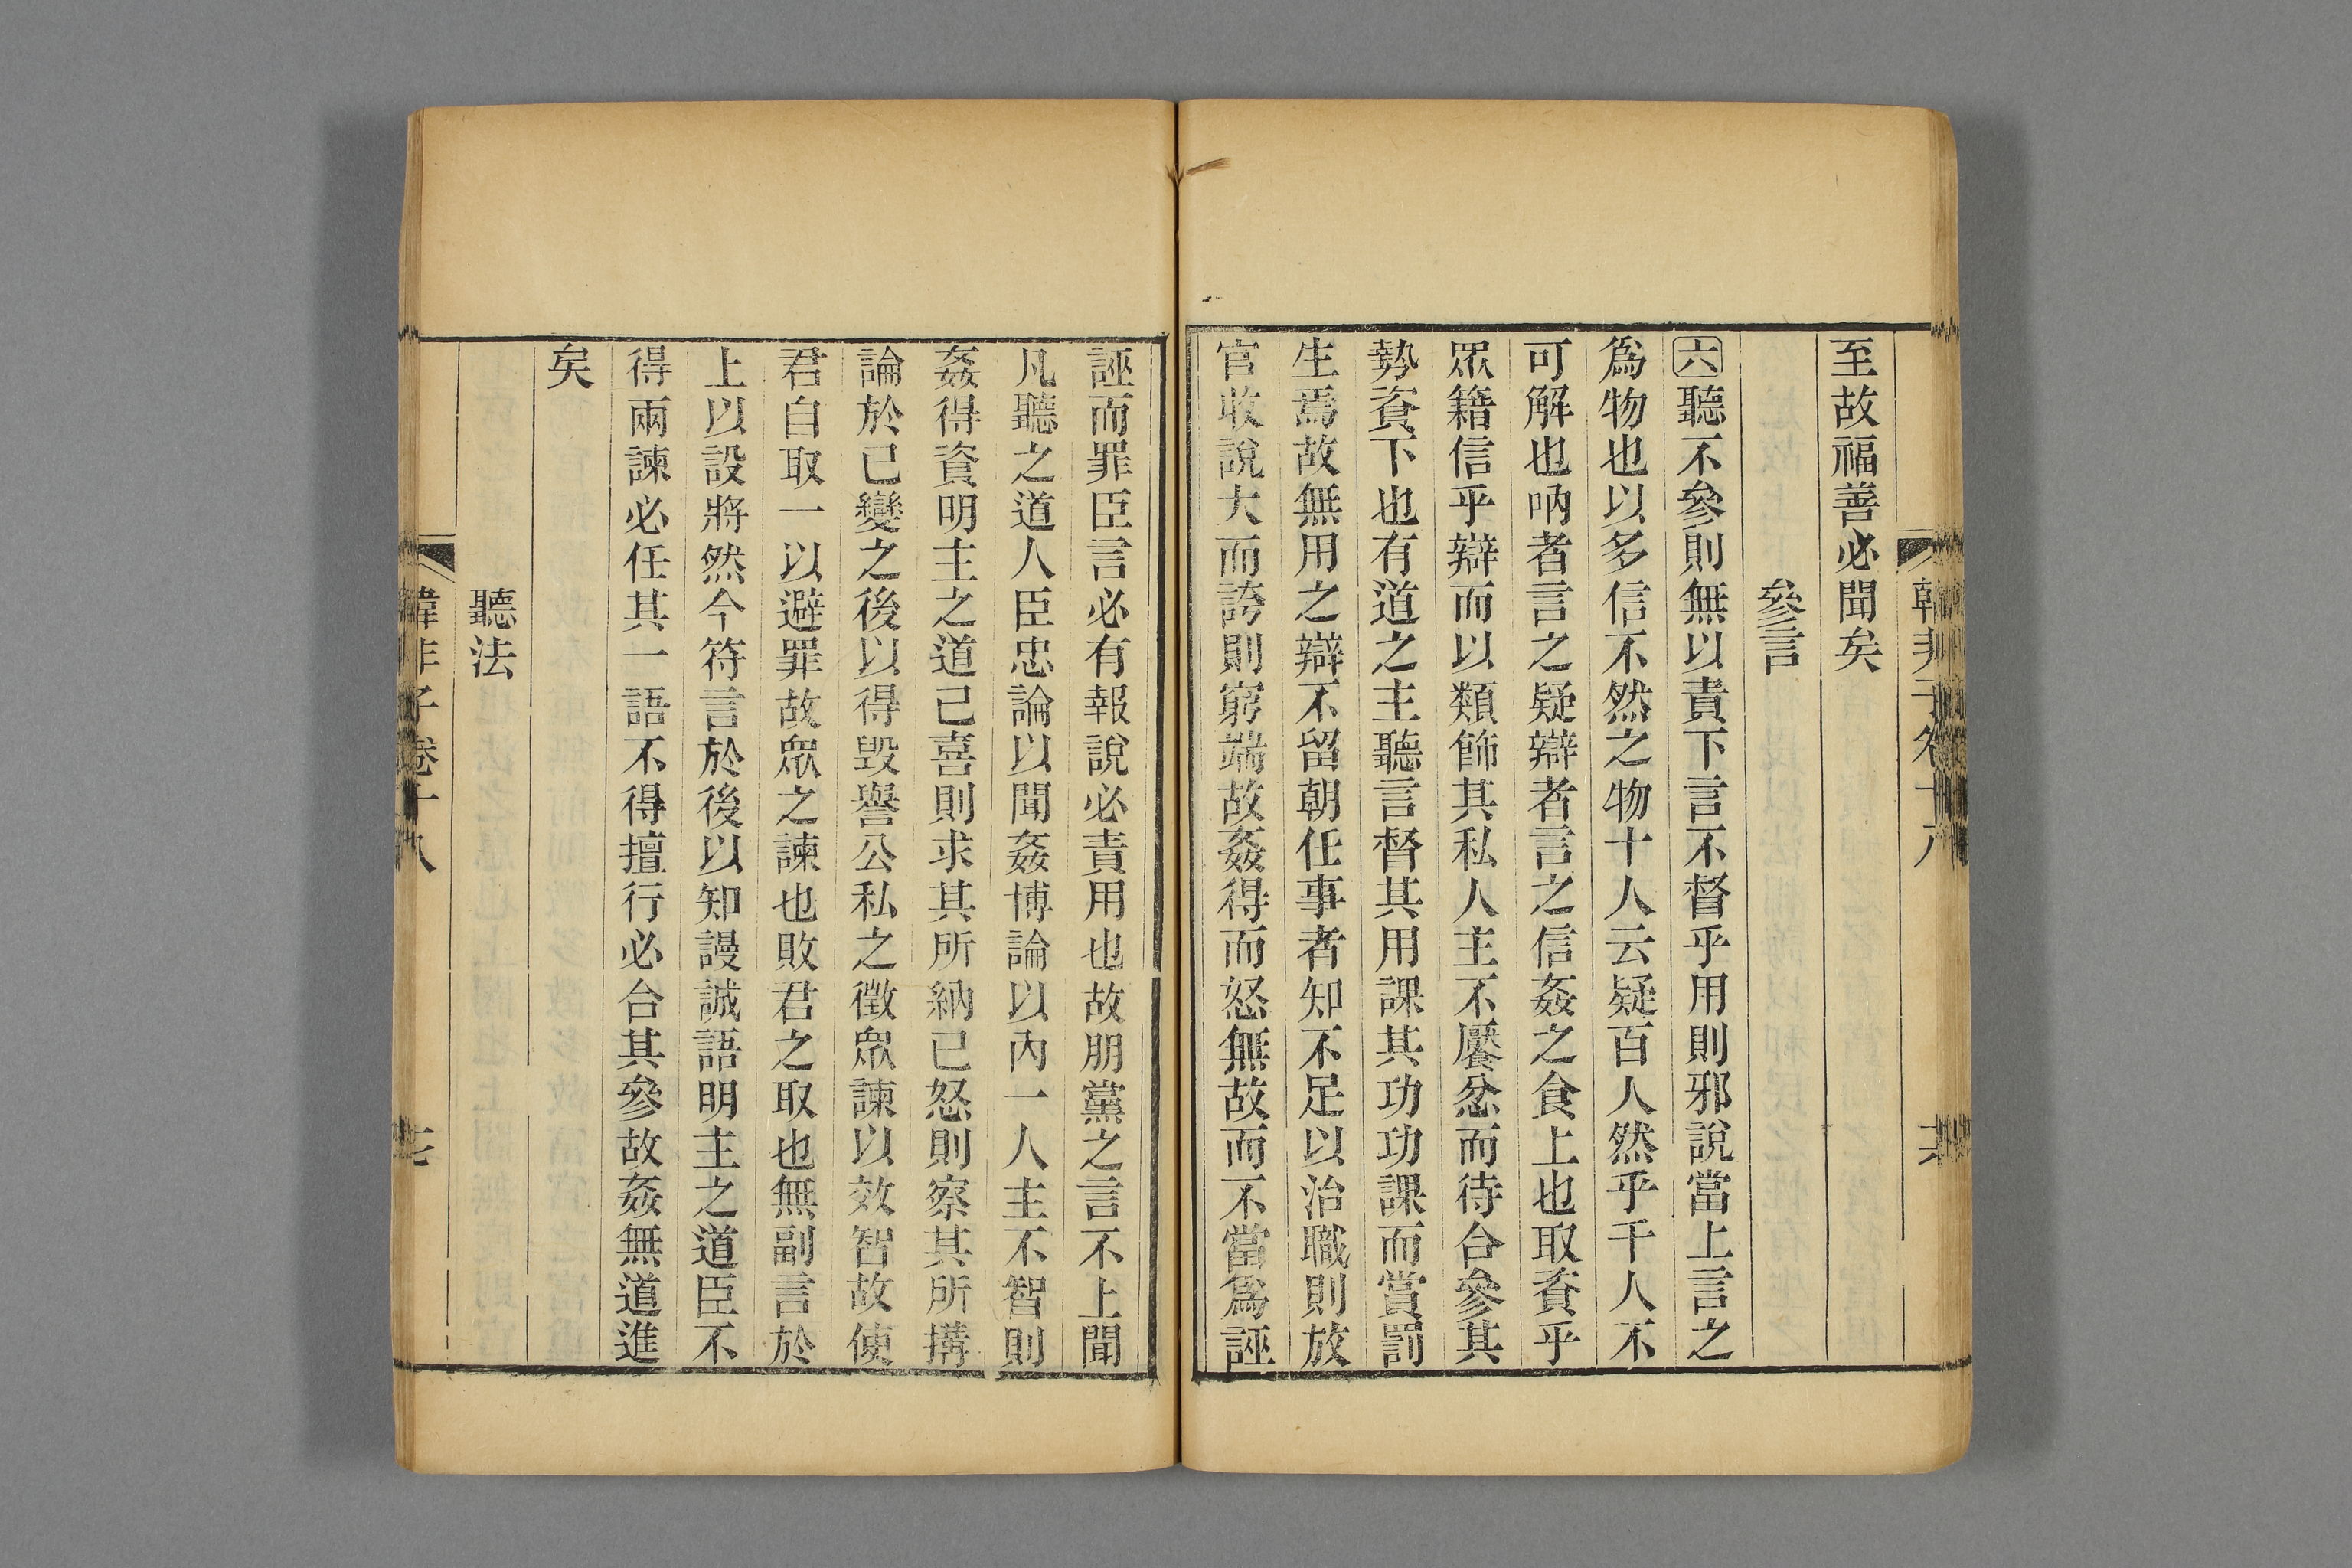 韓非子卷十八
六
至故福善必聞矣
參言
六聽不參則無以責下言不督乎用則邪說當上言之
爲物也以多信不然之物十人云疑百人然乎千人不
可解也吶者言之疑辯者言之信姦之食上也取資乎
眾籍信乎辯而以類飾其私人主不饜忿而待合參其
勢資下也有道之主聽言督其用課其功功課而賞罰
生焉故無用之辯不留朝任事者知不足以治職則放
官收說大而誇則窮端故姦得而怒無故而不當爲誣
誣而罪臣言必有報說必責用也故朋黨之言不上聞
凡聽之道人臣忠論以聞姦博論以內一人主不智則
姦得資明主之道己喜則求其所納已怒則察其所搆
論於已變之後以得毀譽公私之徵眾諫以效智故使
君自取一以避罪故眾之諫也敗君之取也無副言於
上以設將然今符言於後以知謾誠語明主之道臣不
得兩諫必任其一語不得擅行必合其參故姦無道進
矣
聽法
韓非子卷十八
七